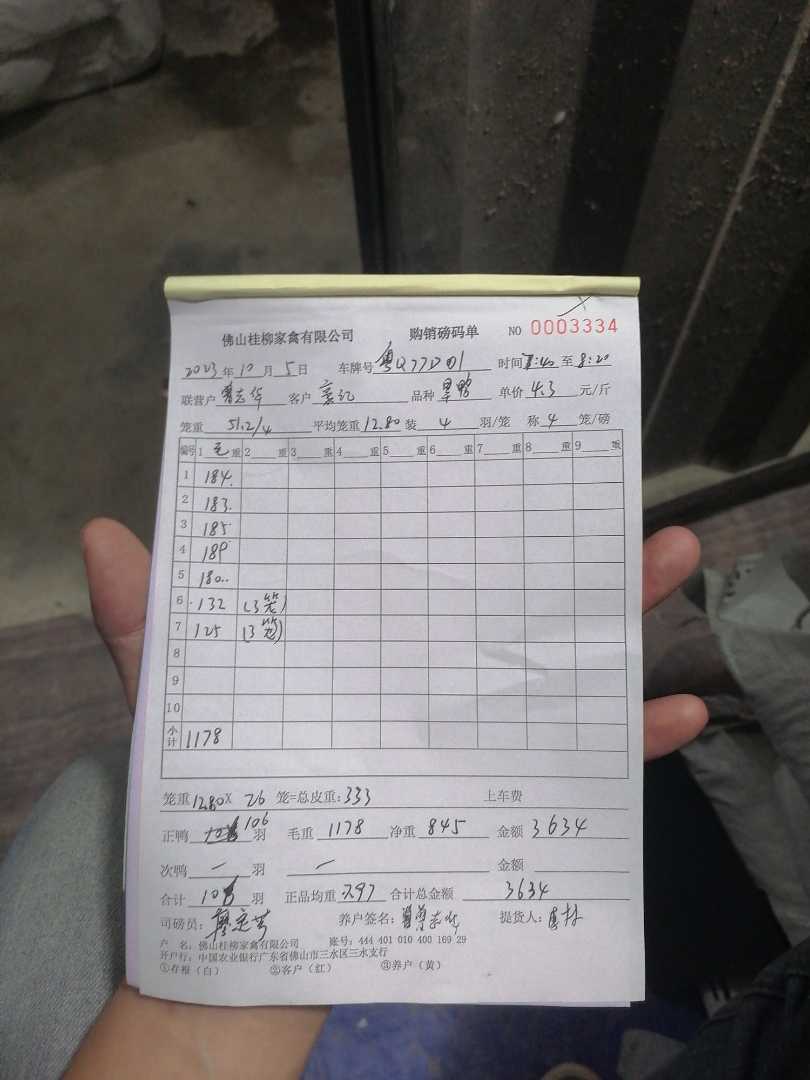 佛山桂柳家禽有限公司 购销磅码单 NO 0003334
2023年10月5日 车牌号 粤Q77D01 时间 7:40 至 8:20
联营户 曾志华 客户 品种 单价 4.3 元/斤
笼重 51.2/4 平均笼重 12.80 装 4 羽/笼 称 4 笼/磅
编号 1 毛 重 2 重 3 重 4 重 5 重 6 重 7 重 8 重 9 重
1 184.
2 183.
3 185
4 189
5 180..
6 132 (3笼)
7 125 (3笼)
8
9
10
小计 1178
笼重 12.80 X 26 笼=总皮重: 333 上车费
正鸭 106 羽 毛重 1178 净重 845 金额 3634
次鸭 一 羽 一 金额
合计 106 羽 正品均重 7.97 合计总金额 3634
司磅员: 养户签名: 曾志华 提货人:
户 名: 佛山桂柳家禽有限公司 账号: 444 401 010 400 169 29
开户行: 中国农业银行广东省佛山市三水区三水支行
①存根(白) ②客户(红) ③养户(黄)